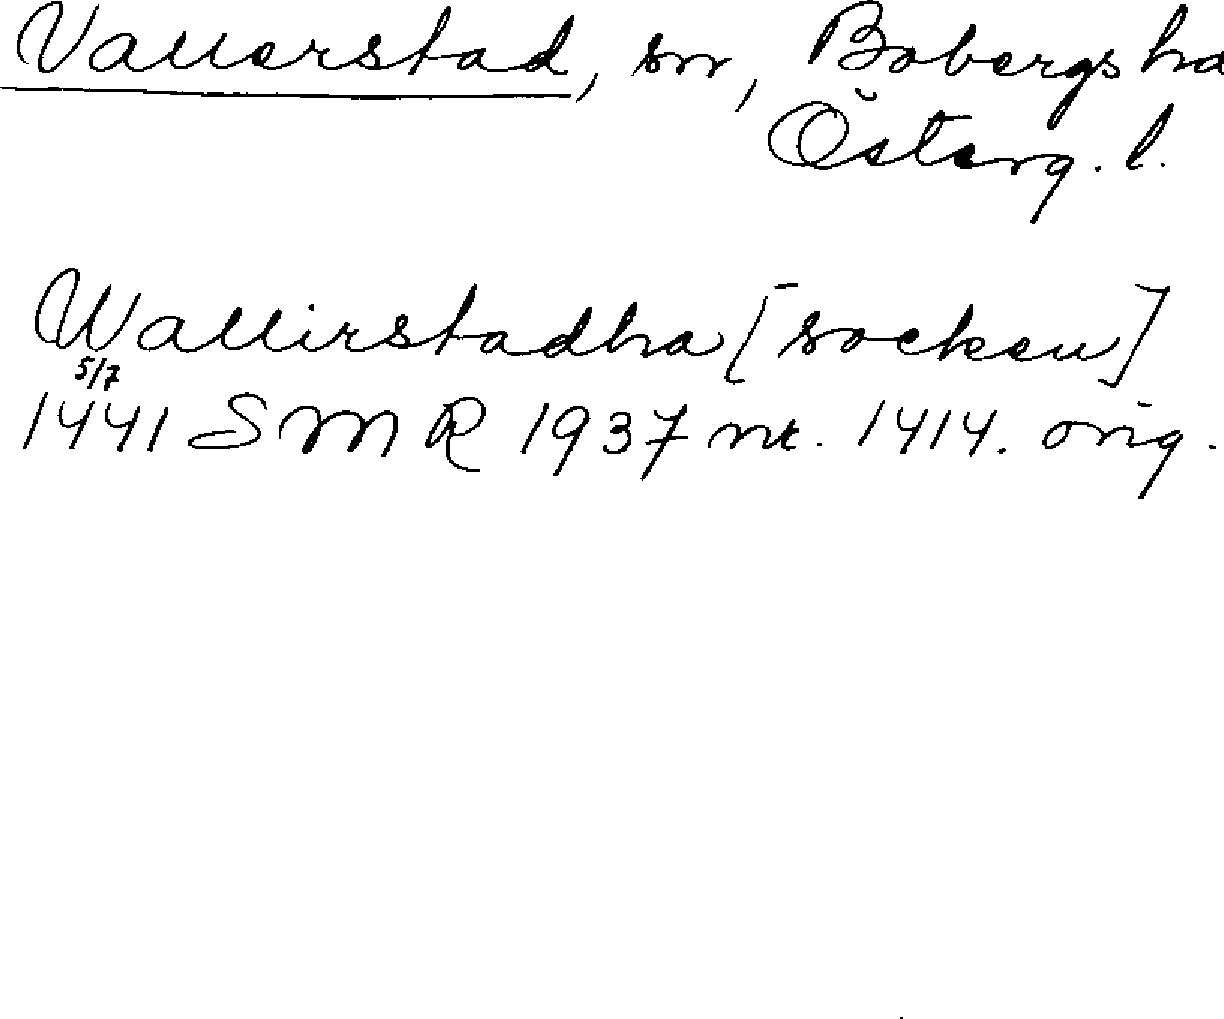 Vallerstad, sn, Bobergs hd
Österg. l.
Wallirstadha [socken]
5/7
1441 SMR 1937 nr. 1414. orig.